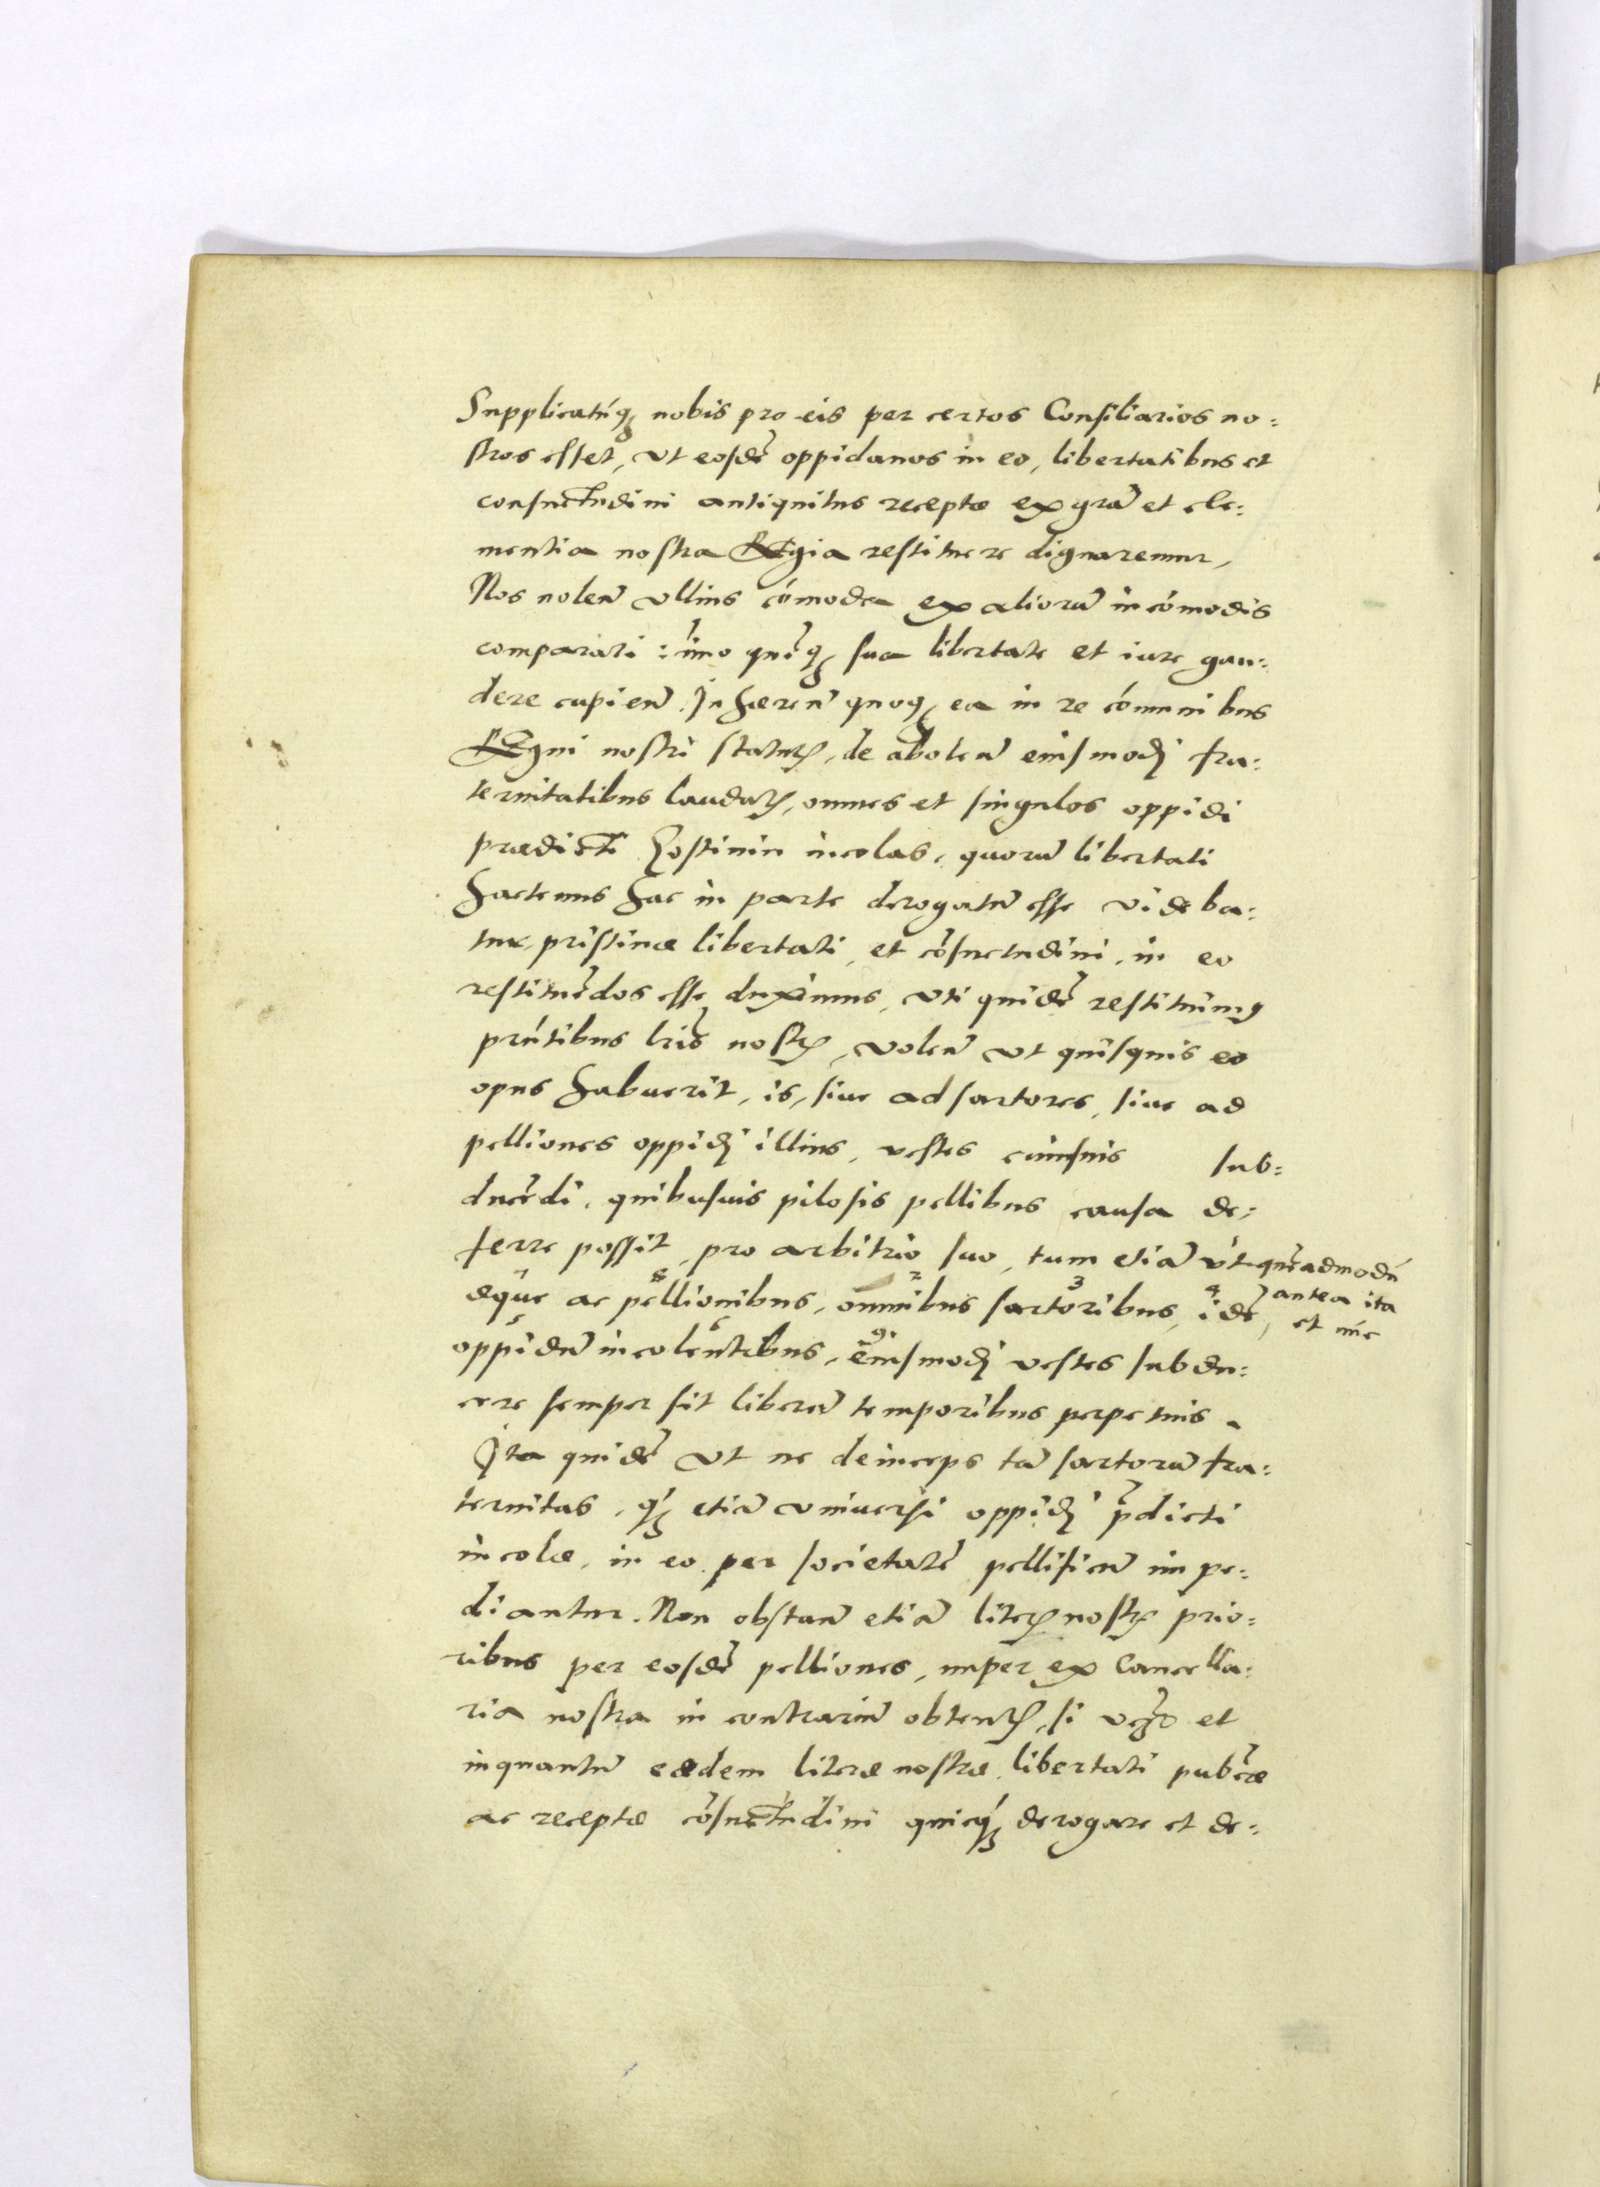 Supplicatuḿq; nobis pro eis per certos Consiliarios no:
stros esset, ut eosdẽ oppidanos in eo, libertatibus et
consuetudini antiquitus receptæ ex grã et cle:
mentia nostra Regia restituere dignaremur,
Nos nolen̄ ullius cómoda ex aliorũ incómodis
comparari: imo quẽq; sua libertate et iure gau:
dere cupien̄. Inhæren̄ quoq; ea in re cómunibus
Regni nostri statutꝭ, de abolen̄ eiusmodj fra:
ternitatibus laudatꝭ, omnes et singulos oppidi
prædicti Gostinin incolas, quorũ libertati
hactenus hac in parte derogatũ esse videba:
tur, pristinæ libertati, et cõsuetudini, in eo
restituẽdos esse duximus, uti quidẽ restituimꝰ
pntibus lris nostꝭ, volen̄ ut quisquis eo
opus habuerit, is, siue ad sartores, siue ad
pelliones oppidj illius, vestes cuiusuis sub:
ducẽdi, quibusuis pilosis pellibus causa de:
ferre possit, pro arbitrio suo, tum etiã ut quẽadmodũ
antea ita
et nũc
æque ac pellionibus, omnibus sartoribus, idẽ
oppidũ incolentibus, eiusmodj vestes subdu:
cere semper sit liberũ temporibus perpetuis.
Ita quidẽ ut ne deinceps tã sartorũ fra:
ternitas, q; etiã universi oppidj p̃dicti
incolæ, in eo per societatẽ pellificũ impe:
diantur. Non obstan̄ etiã literꝭ nostꝭ prio:
ribus per eosdẽ pelliones, nuper ex Cancella:
ria nostra in contrariũ obtentꝭ, si vero et
inquantũ eædem literæ nostræ libertati pub̃cæ
ac receptæ cõsuetudini quicq; derogare et de: